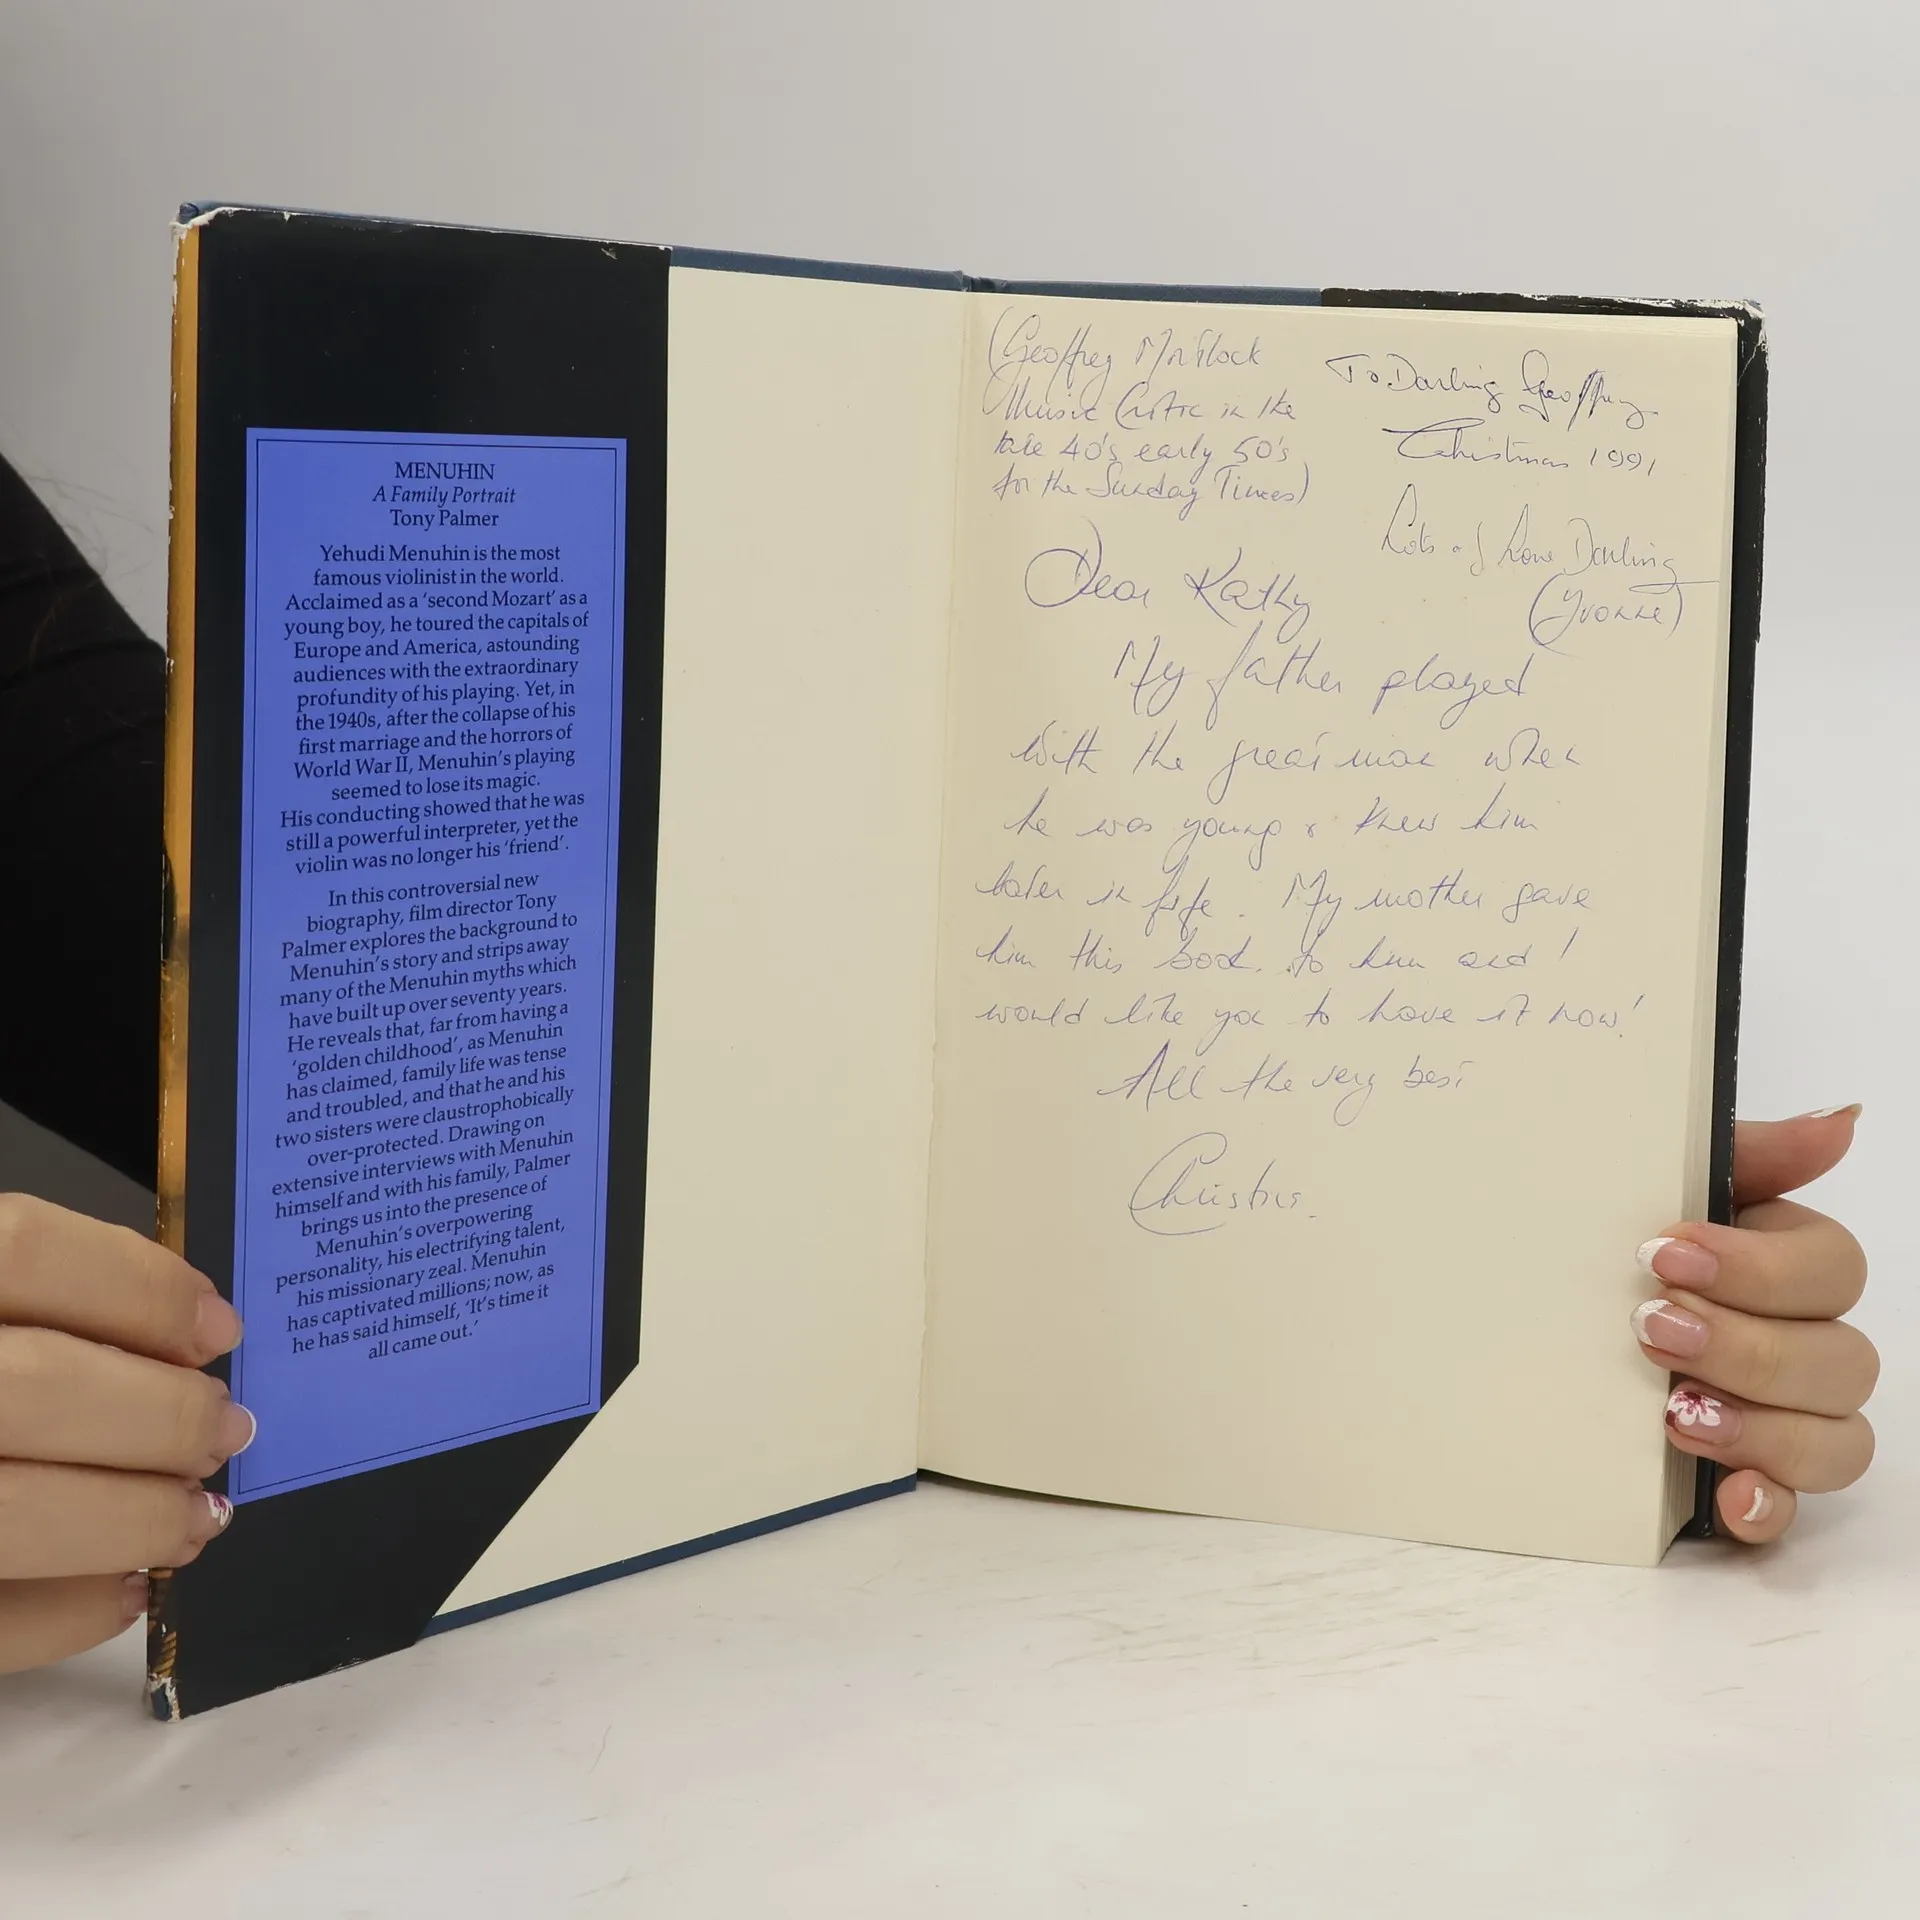 MENUHIN
A Family Portrait
Tony Palmer
Yehudi Menuhin is the most
famous violinist in the world.
Acclaimed as a ‘second Mozart’ as a
young boy, he toured the capitals of
Europe and America, astounding
audiences with the extraordinary
profundity of his playing. Yet, in
the 1940s, after the collapse of his
first marriage and the horrors of
World War II, Menuhin’s playing
seemed to lose its magic.
His conducting showed that he was
still a powerful interpreter, yet the
violin was no longer his ‘friend’.
In this controversial new
biography, film director Tony
Palmer explores the background to
Menuhin’s story and strips away
many of the Menuhin myths which
have built up over seventy years.
He reveals that, far from having a
‘golden childhood’, as Menuhin
has claimed, family life was tense
and troubled, and that he and his
two sisters were claustrophobically
over-protected. Drawing on
extensive interviews with Menuhin
himself and with his family, Palmer
brings us into the presence of
Menuhin’s overpowering
personality, his electrifying talent,
his missionary zeal. Menuhin
has captivated millions; now, as
he has said himself, ‘It’s time it
all came out.’
(Geoffrey
Music Critic in the
late 40's early 50's
for the Sunday Times)
To Darling Geoffrey
Christmas 1991
Lots of Love Darling
(Yvonne)
Dear Kathy
My father played
with the great man when
he was young & knew him
later in life. My mother gave
him this book. to him and I
would like you to have it now!
All the very best